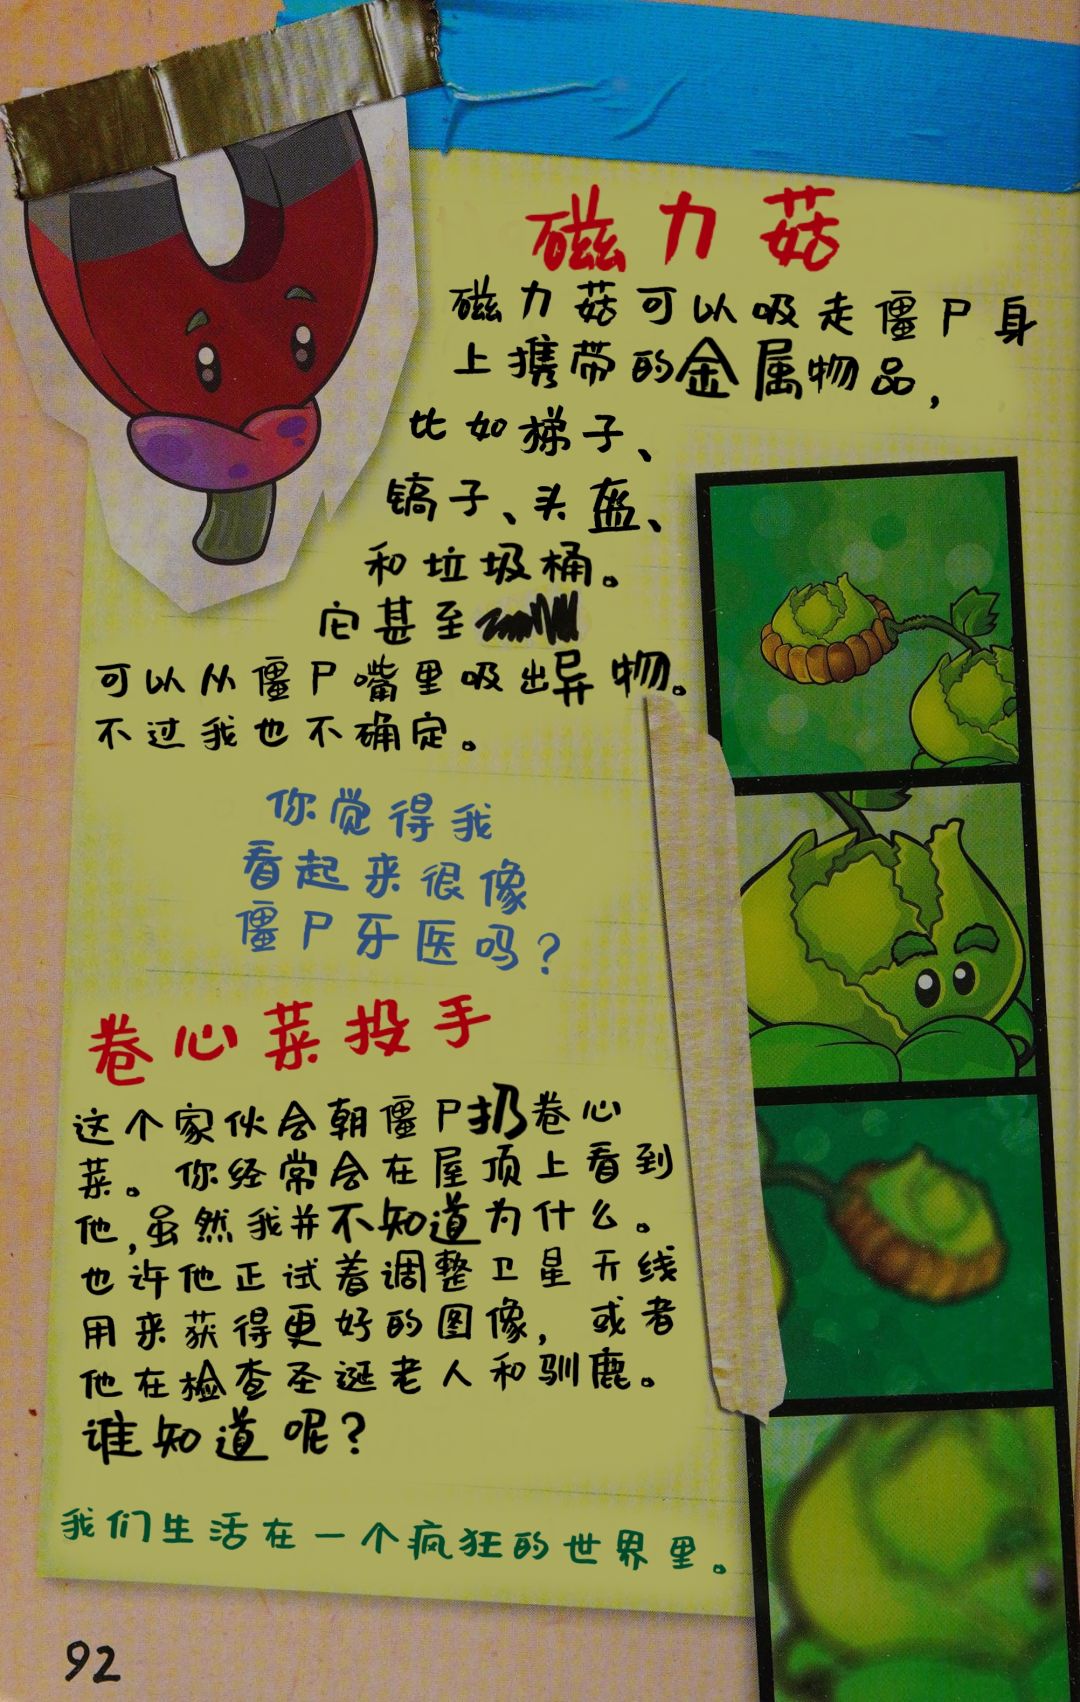 磁力菇
磁力菇可以吸走僵尸身
上携带的金属物品，
比如梯子、
镐子、头盔、
和垃圾桶。
它甚至
可以从僵尸嘴里吸出异物。
不过我也不确定。
你觉得我
看起来很像
僵尸牙医吗？
卷心菜投手
这个家伙会朝僵尸扔卷心
菜。你经常会在屋顶上看到
他，虽然我并不知道为什么。
也许他正试着调整卫星天线
用来获得更好的图像，或者
他在检查圣诞老人和驯鹿。
谁知道呢？
我们生活在一个疯狂的世界里。
92